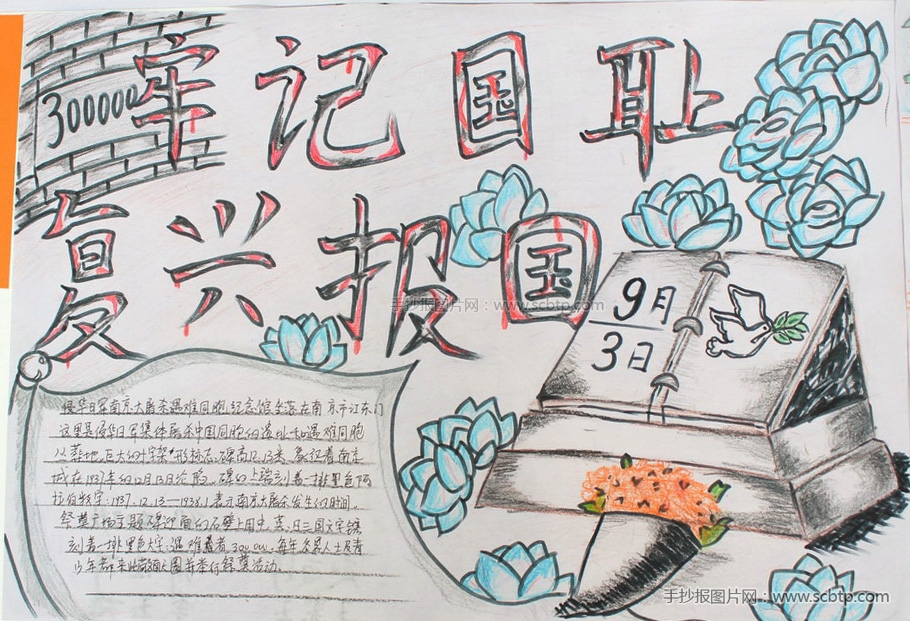 300000
牢记国耻
复兴报国
手抄报图片网：www.scbtp.com
9月
3日
侵华日军南京大屠杀遇难同胞纪念馆坐落在南京市江东门
这里是侵华日军集体屠杀中国同胞的遗址和遇难同胞
丛葬地,巨大的十字架形标志碑高12.13米,象征着南京
城在1937年的12月13日沦陷。碑的上端刻着一排黑色阿
拉伯数字:1937.12.13—1938.1表示南京大屠杀发生的时间。
祭奠广场 碑迎面的石壁上用中、英、日三国文字镌
刻着一排黑色大字:遇难者300000。每年各界人士及青
少年都来 并举行祭奠活动.
手抄报图片网：www.scbtp.com